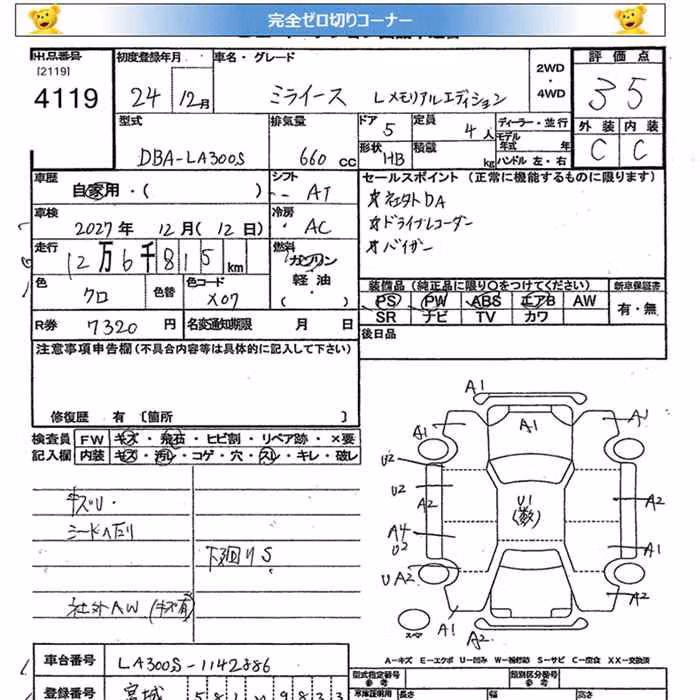 完全ゼロ切りコーナー
出品番号
[2119]
4119
初度登録年月
24 12月
車名・グレード
ミライース Lメモリアルエディション
2WD
・
4WD
評価点
35
型式
DBA-LA300S
排気量
660 cc
ドア 5
形状 HB
定員 4人
積載 kg
ディーラー・並行
モデル年式 年
ハンドル 左・右
外装 内装
C C
車歴
自家用・( )
シフト
AT
セールスポイント (正常に機能するものに限ります)
☆ネェクストDA
☆ドライブレコーダー
☆バイザー
車検
2027年 12月(12日)
冷房
AC
走行
12万6千815km
燃料
ガソリン
軽油
・( )
色
クロ
色替
色コード
X07
装備品 (純正品に限り○をつけてください)
PS PW ABS エアB AW
SR ナビ TV カワ
新車保証書
有・無
R券 7320円
名変通知期限 月 日
後日品
注意事項申告欄 (不具合内容等は具体的に記入して下さい)
修復歴 有 [箇所 ]
検査員記入欄
FW キズ・飛石・ヒビ割・リペア跡・×要
内装 キズ・汚れ・コゲ・穴・スレ・キレ・破レ
キズU・
シートヘタリ
下廻りS
社外AW (キズ有)
A1
A1
A1
A1
U2
U2
A2
A4
U2
UA2
A1
U1
(数)
A2
A1
A2
A2
スペア
A-キズ E-エクボ U-凹み W-補修跡 S-サビ C-腐食 XX-交換済
車台番号
LA300S-1142886
登録番号
宮城 581
型式指定番号
類別区分番号
(参考)
車庫証明用
長さ
幅
高さ